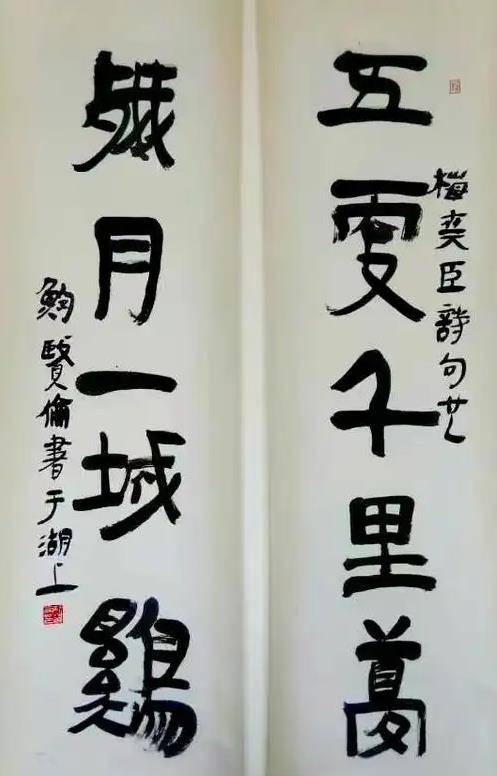 五更千里夢
梅堯臣詩句也
殘月一城鷄
鮑賢倫書于湖上